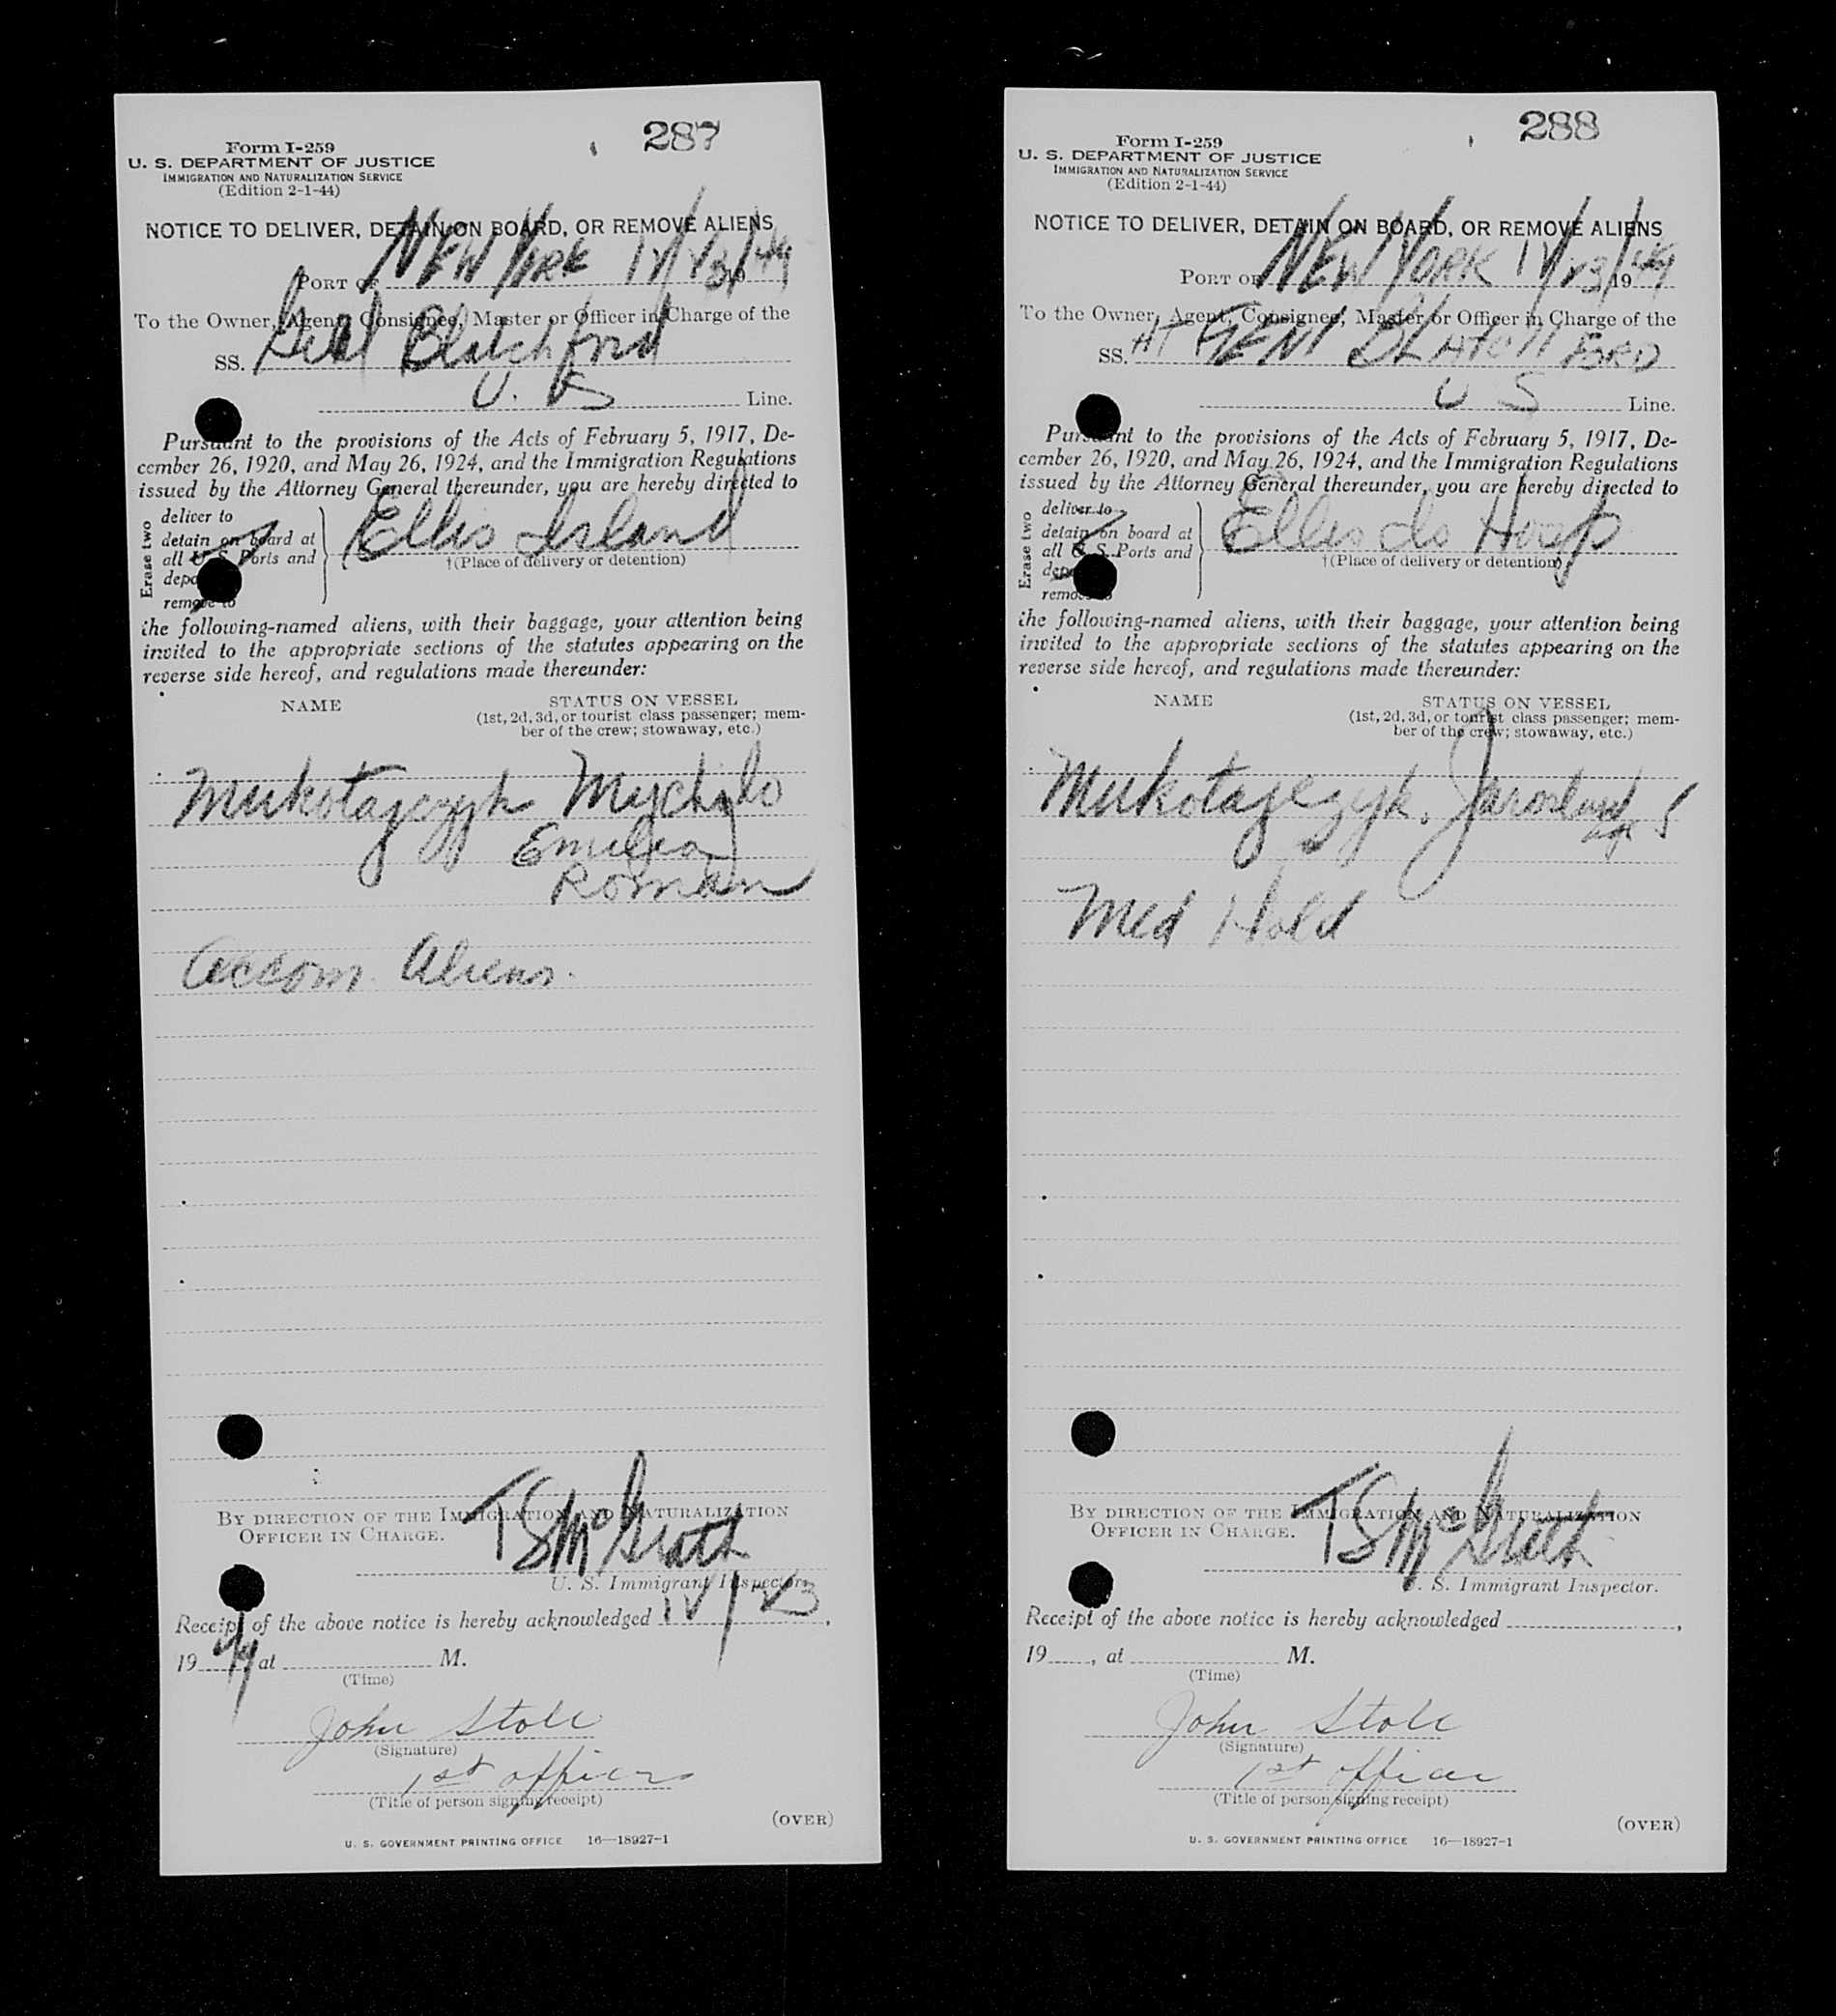 287
Form I-259
U. S. DEPARTMENT OF JUSTICE
IMMIGRATION AND NATURALIZATION SERVICE
(Edition 2-1-44)
NOTICE TO DELIVER, DETAIN ON BOARD, OR REMOVE ALIENS
PORT OF NEW YORK 19 49
To the Owner, Agent, Consignee, Master or Officer in Charge of the
SS. Genl Blatchford
U. S Line.
Pursuant to the provisions of the Acts of February 5, 1917, De-
cember 26, 1920, and May 26, 1924, and the Immigration Regulations
issued by the Attorney General thereunder, you are hereby directed to
Erase two
deliver to
detain on board at
all U S Ports and
remove to
Ellis Island
†(Place of delivery or detention)
the following-named aliens, with their baggage, your attention being
invited to the appropriate sections of the statutes appearing on the
reverse side hereof, and regulations made thereunder:
NAME STATUS ON VESSEL
(1st, 2d, 3d, or tourist class passenger; mem-
ber of the crew; stowaway, etc.)
Mychajlo
Emilja
Roman
Accom. Aliens.
BY DIRECTION OF THE IMMIGRATION AND NATURALIZATION
OFFICER IN CHARGE.
TS McGrath
U. S. Immigrant Inspector.
Receipt of the above notice is hereby acknowledged
19 49, at M.
(Time)
John Stole
(Signature)
1st officer
(Title of person signing receipt)
(OVER)
U. S. GOVERNMENT PRINTING OFFICE 16—18927-1
288
Form I-259
U. S. DEPARTMENT OF JUSTICE
IMMIGRATION AND NATURALIZATION SERVICE
(Edition 2-1-44)
NOTICE TO DELIVER, DETAIN ON BOARD, OR REMOVE ALIENS
PORT OF NEW YORK 19 49
To the Owner, Agent, Consignee, Master or Officer in Charge of the
SS. AT GENL BLATCHFORD
U S Line.
Pursuant to the provisions of the Acts of February 5, 1917, De-
cember 26, 1920, and May 26, 1924, and the Immigration Regulations
issued by the Attorney General thereunder, you are hereby directed to
Erase two
deliver to
detain on board at
all U. S. Ports and
remove to
Ellis Is Hosp
†(Place of delivery or detention)
the following-named aliens, with their baggage, your attention being
invited to the appropriate sections of the statutes appearing on the
reverse side hereof, and regulations made thereunder:
NAME STATUS ON VESSEL
(1st, 2d, 3d, or tourist class passenger; mem-
ber of the crew; stowaway, etc.)
age 5
Med Hold
BY DIRECTION OF THE IMMIGRATION AND NATURALIZATION
OFFICER IN CHARGE.
TS McGrath
U. S. Immigrant Inspector.
Receipt of the above notice is hereby acknowledged ,
19 , at M.
(Time)
John Stole
(Signature)
1st officer
(Title of person signing receipt)
(OVER)
U. S. GOVERNMENT PRINTING OFFICE 16—18927-1